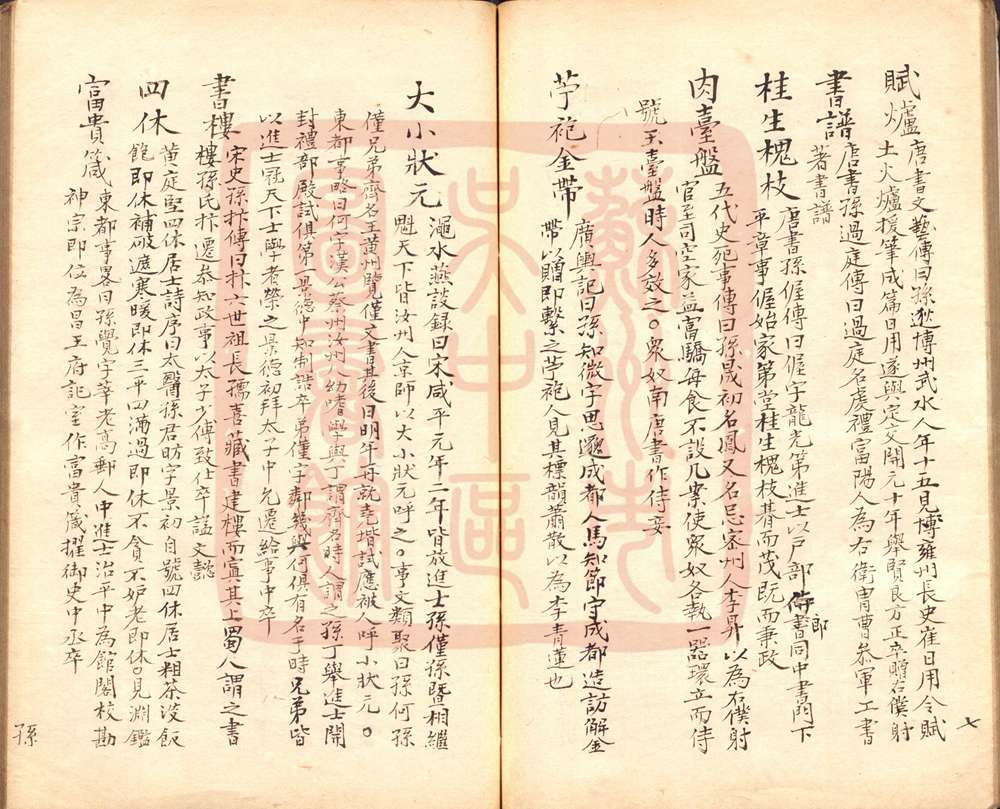 七
賦爐唐書文藝傳曰孫逖博州武水人年十五見博雍州長史崔日用令賦
土火爐援筆成篇日用遂與定交開元十年舉賢良方正卒贈右僕射
書譜唐書孫過庭傳曰過庭名虔禮富陽人為右衛冑曹叅軍工書
著書譜
桂生槐枝唐書孫偓傳曰偓字龍光第進士以戶部侍書同中書門下
郎
平章事偓始家第堂桂生槐枝朞而茂既而秉政
肉臺盤五代史死事傳曰孫晟初名鳳又名忌密州人李昇以為右僕射
官至司空家益富驕每食不設几案使衆奴各執一器環立而侍
號玉臺盤時人多效之○衆奴南唐書作侍妾
苧袍金帶廣輿記曰孫知微字思邈成都人馬知節守成都造訪解金
帶以贈即繫之苧袍人見其標韻蕭散以為李青蓮也
大小狀元澠水燕談録曰宋咸平元年二年皆放進士孫僅孫暨相繼
魁天下皆汝州人京師以大小狀元呼之○事文類聚曰孫何孫
僅兄弟齊名王黃州覽僅文書其後曰明年再就堯堦試應被人呼小狀元○
東都事略曰何字漢公蔡州汝州人幼嗜學與丁謂齊名時人謂之孫丁舉進士開
封禮部殿試俱第一景德中知制誥卒弟僅字鄰幾與何俱有名于時兄弟皆
以進士冠天下士學者榮之景德初拜太子中允遷給事中卒
書樓宋史孫抃傳曰抃六世祖長孺喜藏書建樓而寘其上蜀人謂之書
樓孫氏抃遷叅知政事以太子少傅致仕卒諡文懿
四休黃庭堅四休居士詩序曰太醫孫君昉字景初自號四休居士粗茶淡飯
飽即休補破遮寒暖即休三平四滿過即休不貪不妒老即休○見淵鑑
富貴箴東都事畧曰孫覺字莘老高郵人中進士治平中為館閣校勘
神宗即位為昌王府記室作富貴箴擢御史中丞卒
孫